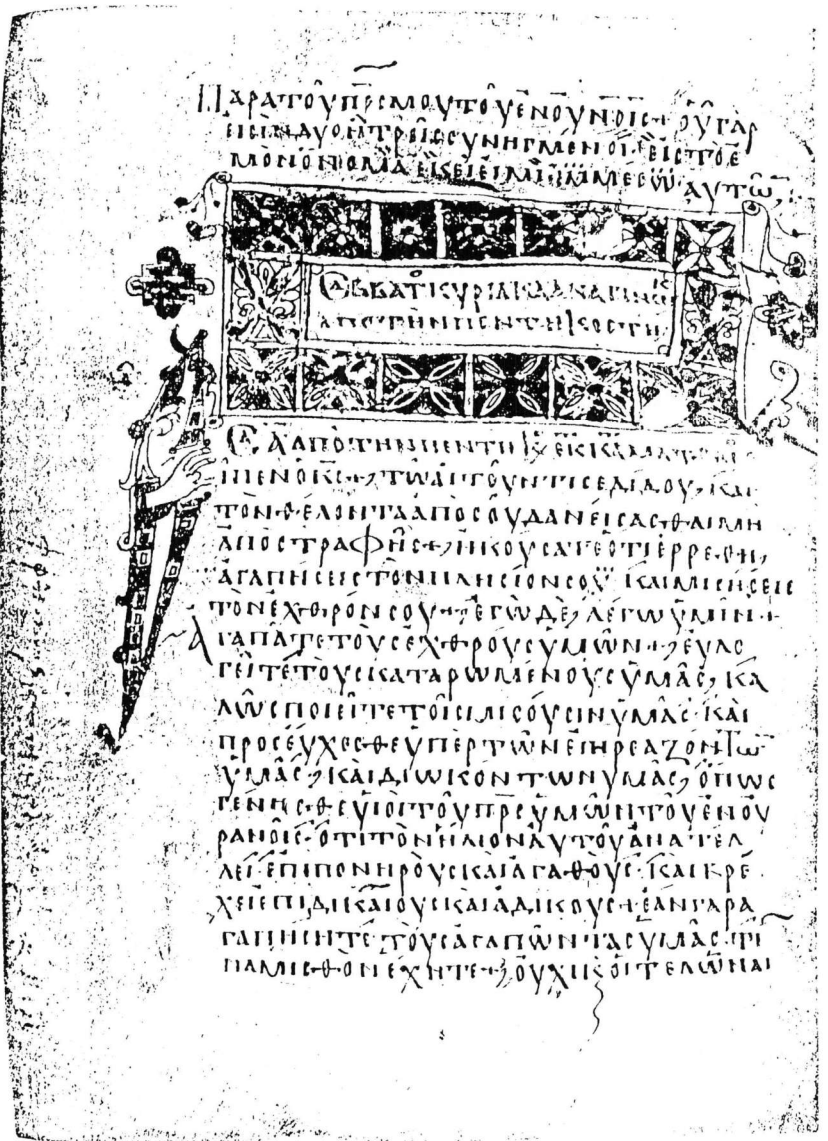 ΠΑΡΑΤΟΥΠΡΣΜΟΥΤΟΥΕΝΟΥΝΟΙΣ + ΟΥΓΑΡ
ΕΙΣΙΝΔΥΟΗΤΡΕΙΣΣΥΝΗΓΜΕΝΟΙ ΕΙΣΤΟΕ
ΜΟΝΟΝΟΜΑ ΕΚΕΙΕΙΜΙ ΕΜΜΕΣΩ ΑΥΤΩ
ΣΑΒΒΑΤΚΥΡΙΑΚ
ΑΠΟΤΗΝΠΕΝΤΗΚΟΣΤΗ
ΑΠΟΤΗΝΠΕΝΤΗΚ ΕΚ
ΠΕΝΟΚΣ + ΤΩΑΙΤΟΥΝΤΙΣΕΔΙΔΟΥ, ΚΑΙ
ΤΟΝΘΕΛΟΝΤΑΑΠΟΣΟΥΔΑΝΕΙΣΑΣΘΑΙΜΗ
ΑΠΟΣΤΡΑΦΗΣ + ΗΚΟΥΣΑΤΕΟΤΙΕΡΡΕΘΗ,
ΑΓΑΠΗΣΕΙΣΤΟΝΠΛΗΣΙΟΝΣΟΥ ΚΑΙΜΙΣΗΣΕΙΣ
ΤΟΝΕΧΘΡΟΝΣΟΥ + ΕΓΩΔΕ, ΛΕΓΩΥΜΙΝ +
ΑΓΑΠΑΤΕΤΟΥΣΕΧΘΡΟΥΣΥΜΩΝ + ΕΥΛΟ
ΓΕΙΤΕΤΟΥΣΚΑΤΑΡΩΜΕΝΟΥΣΥΜΑΣ, ΚΑ
ΛΩΣΠΟΙΕΙΤΕΤΟΙΣΜΙΣΟΥΣΙΝΥΜΑΣ ΚΑΙ
ΠΡΟΣΕΥΧΕΣΘΕΥΠΕΡΤΩΝΕΠΗΡΕΑΖΟΝΤΩ
ΥΜΑΣ, ΚΑΙΔΙΩΚΟΝΤΩΝΥΜΑΣ, ΟΠΩΣ
ΓΕΝΗΣΘΕΥΙΟΙΤΟΥΠΡΣΥΜΩΝΤΟΥΕΝΟΥ
ΡΑΝΟΙΣ ΟΤΙΤΟΝΗΛΙΟΝΑΥΤΟΥΑΝΑΤΕΛ
ΛΕΙ ΕΠΙΠΟΝΗΡΟΥΣΚΑΙΑΓΑΘΟΥΣ ΚΑΙΒΡΕ
ΧΕΙΕΠΙΔΙΚΑΙΟΥΣΚΑΙΑΔΙΚΟΥΣ + ΕΑΝΓΑΡΑ
ΓΑΠΗΣΗΤΕ ΤΟΥΣΑΓΑΠΩΝΤΑΣΥΜΑΣ ΤΙ
ΝΑΜΙΣΘΟΝΕΧΗΤΕ + ΟΥΧΙΚΟΙΤΕΛΩΝΑΙ